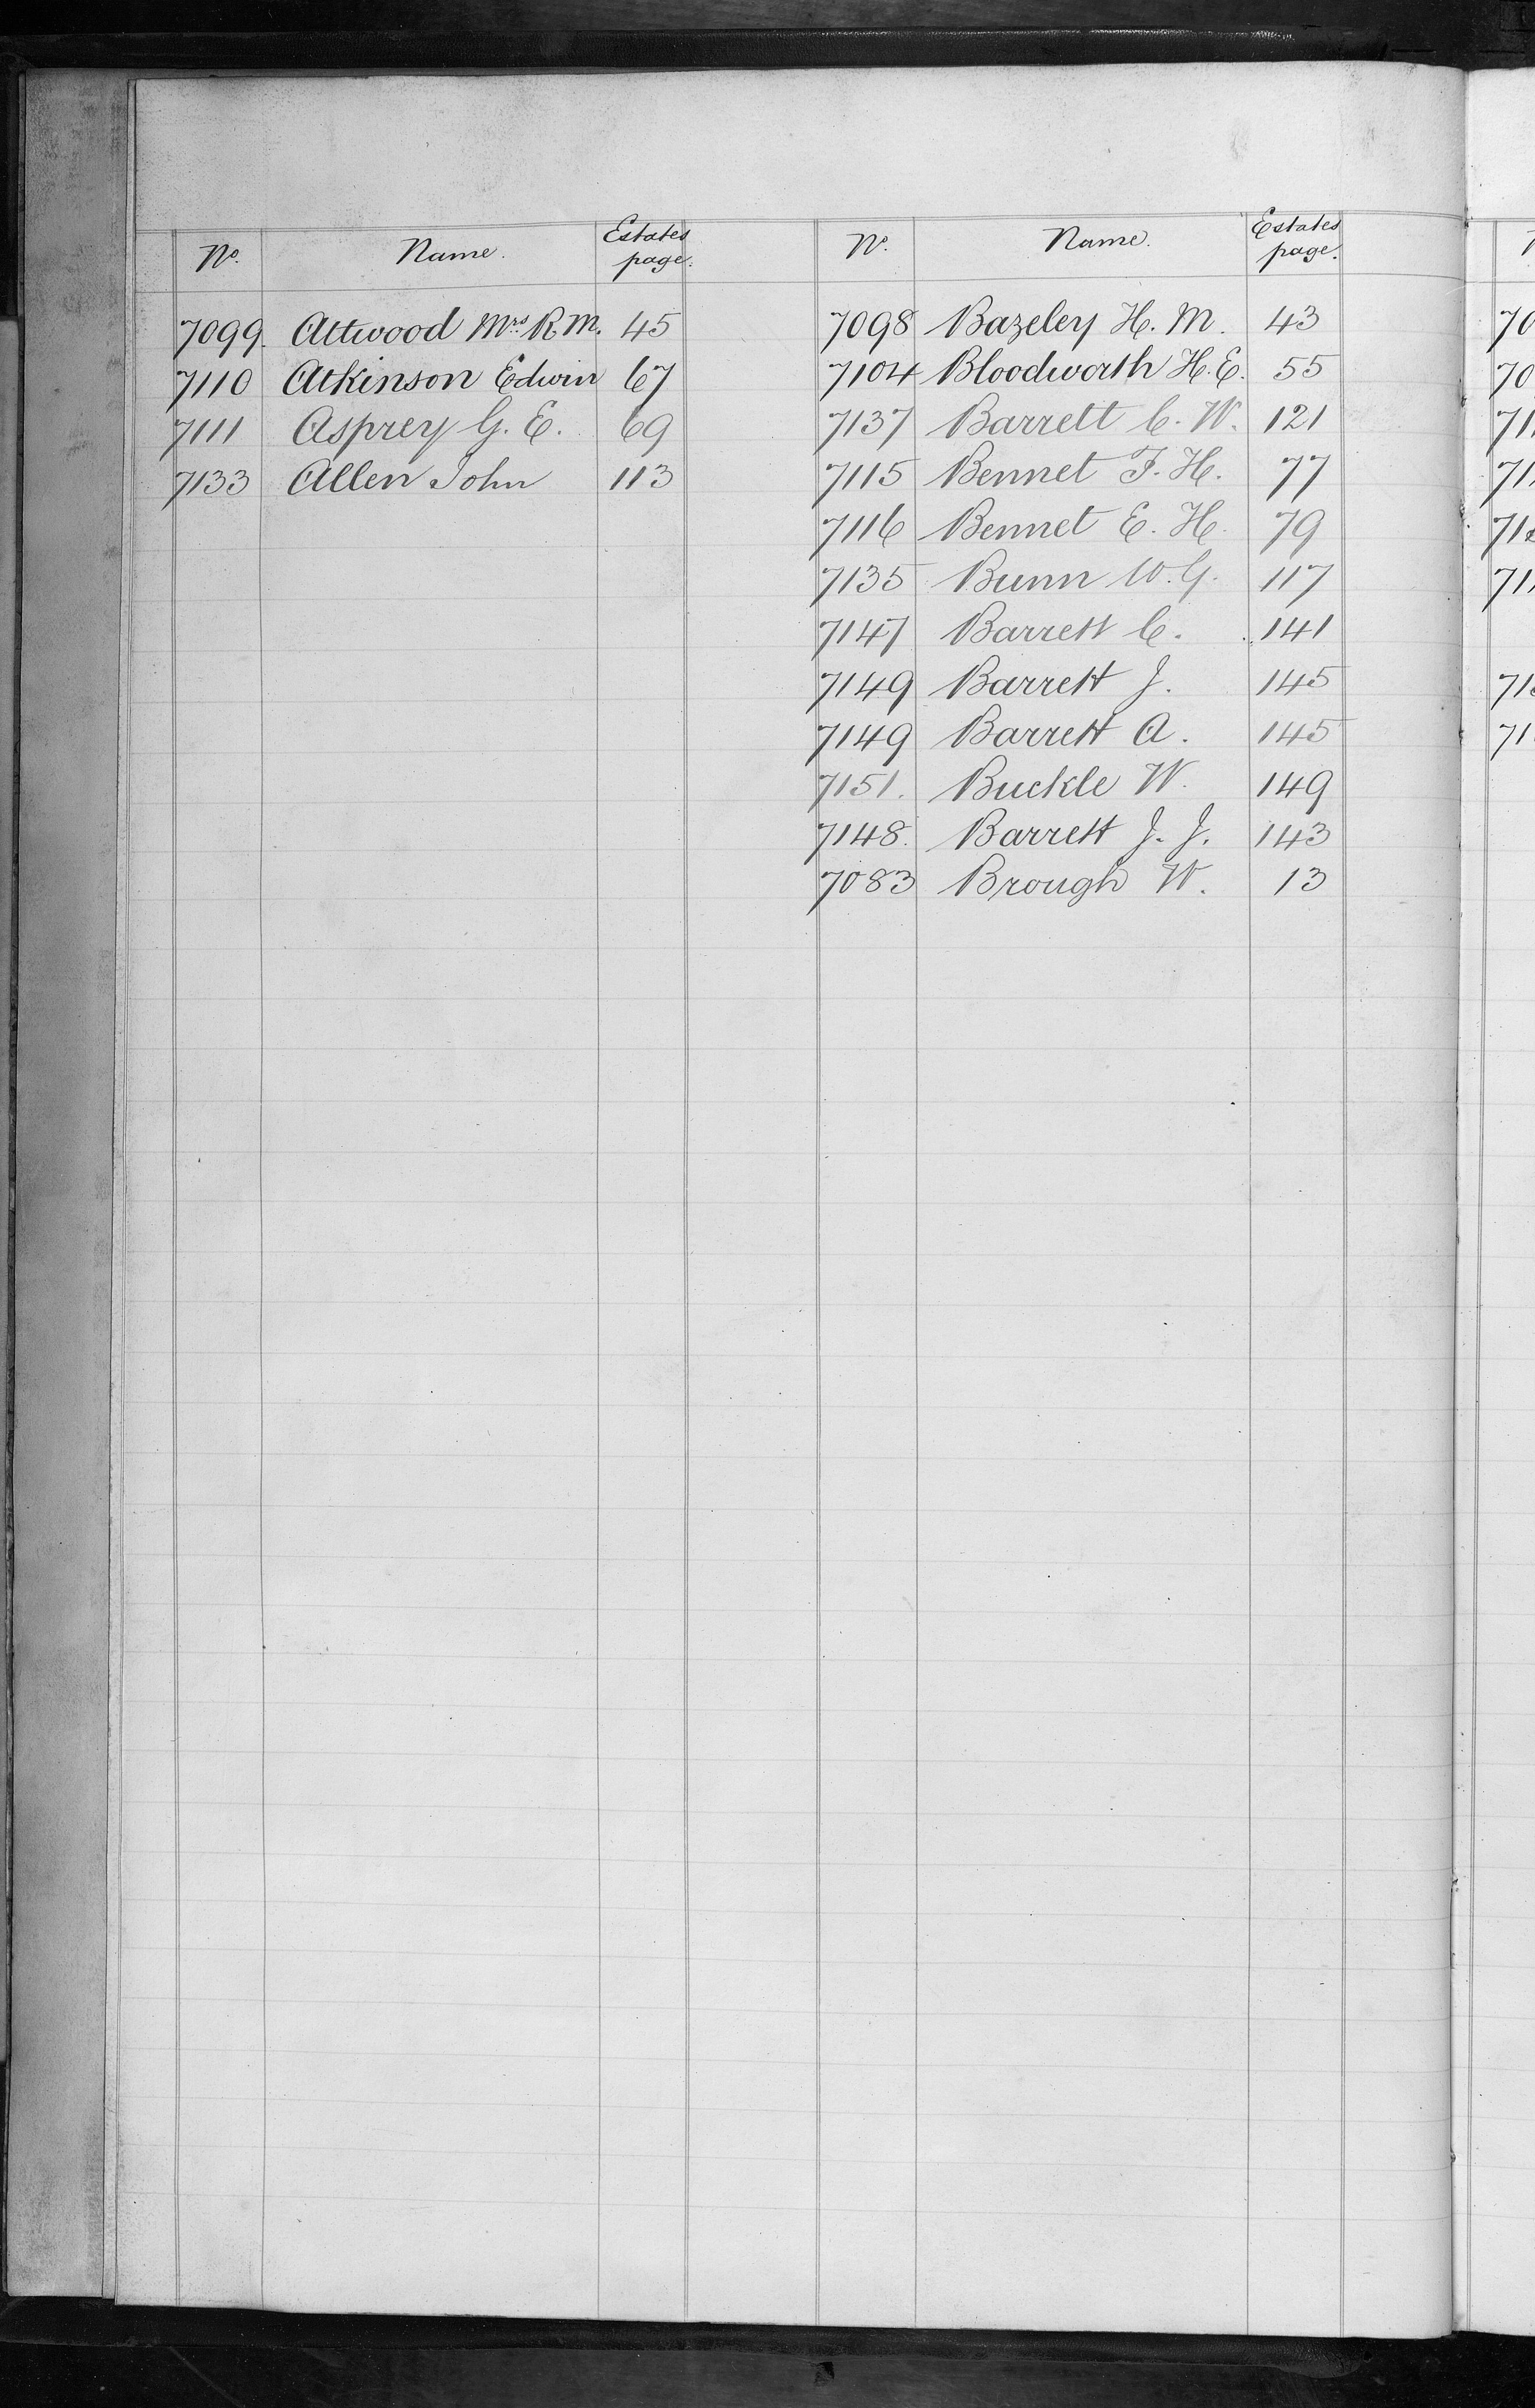 No. Name. Estates page.
7099. Attwood Mrs R. M. 45
7110 Atkinson Edwin 67
7111 Asprey G. E. 69
7133 Allen John 113
No. Name. Estates page.
7098 Bazeley H. M. 43
7104 Bloodworth H. E. 55
7137 Barrett C. W. 121
7115 Bennet F. H. 77
7116 Bennet E. H. 79
7135 Bunn W. G. 117
7147 Barrett C. 141
7149 Barrett J. 145
7149 Barrett A. 145
7151. Buckle W. 149
7148. Barrett J. J. 143
7083 Brough W. 13